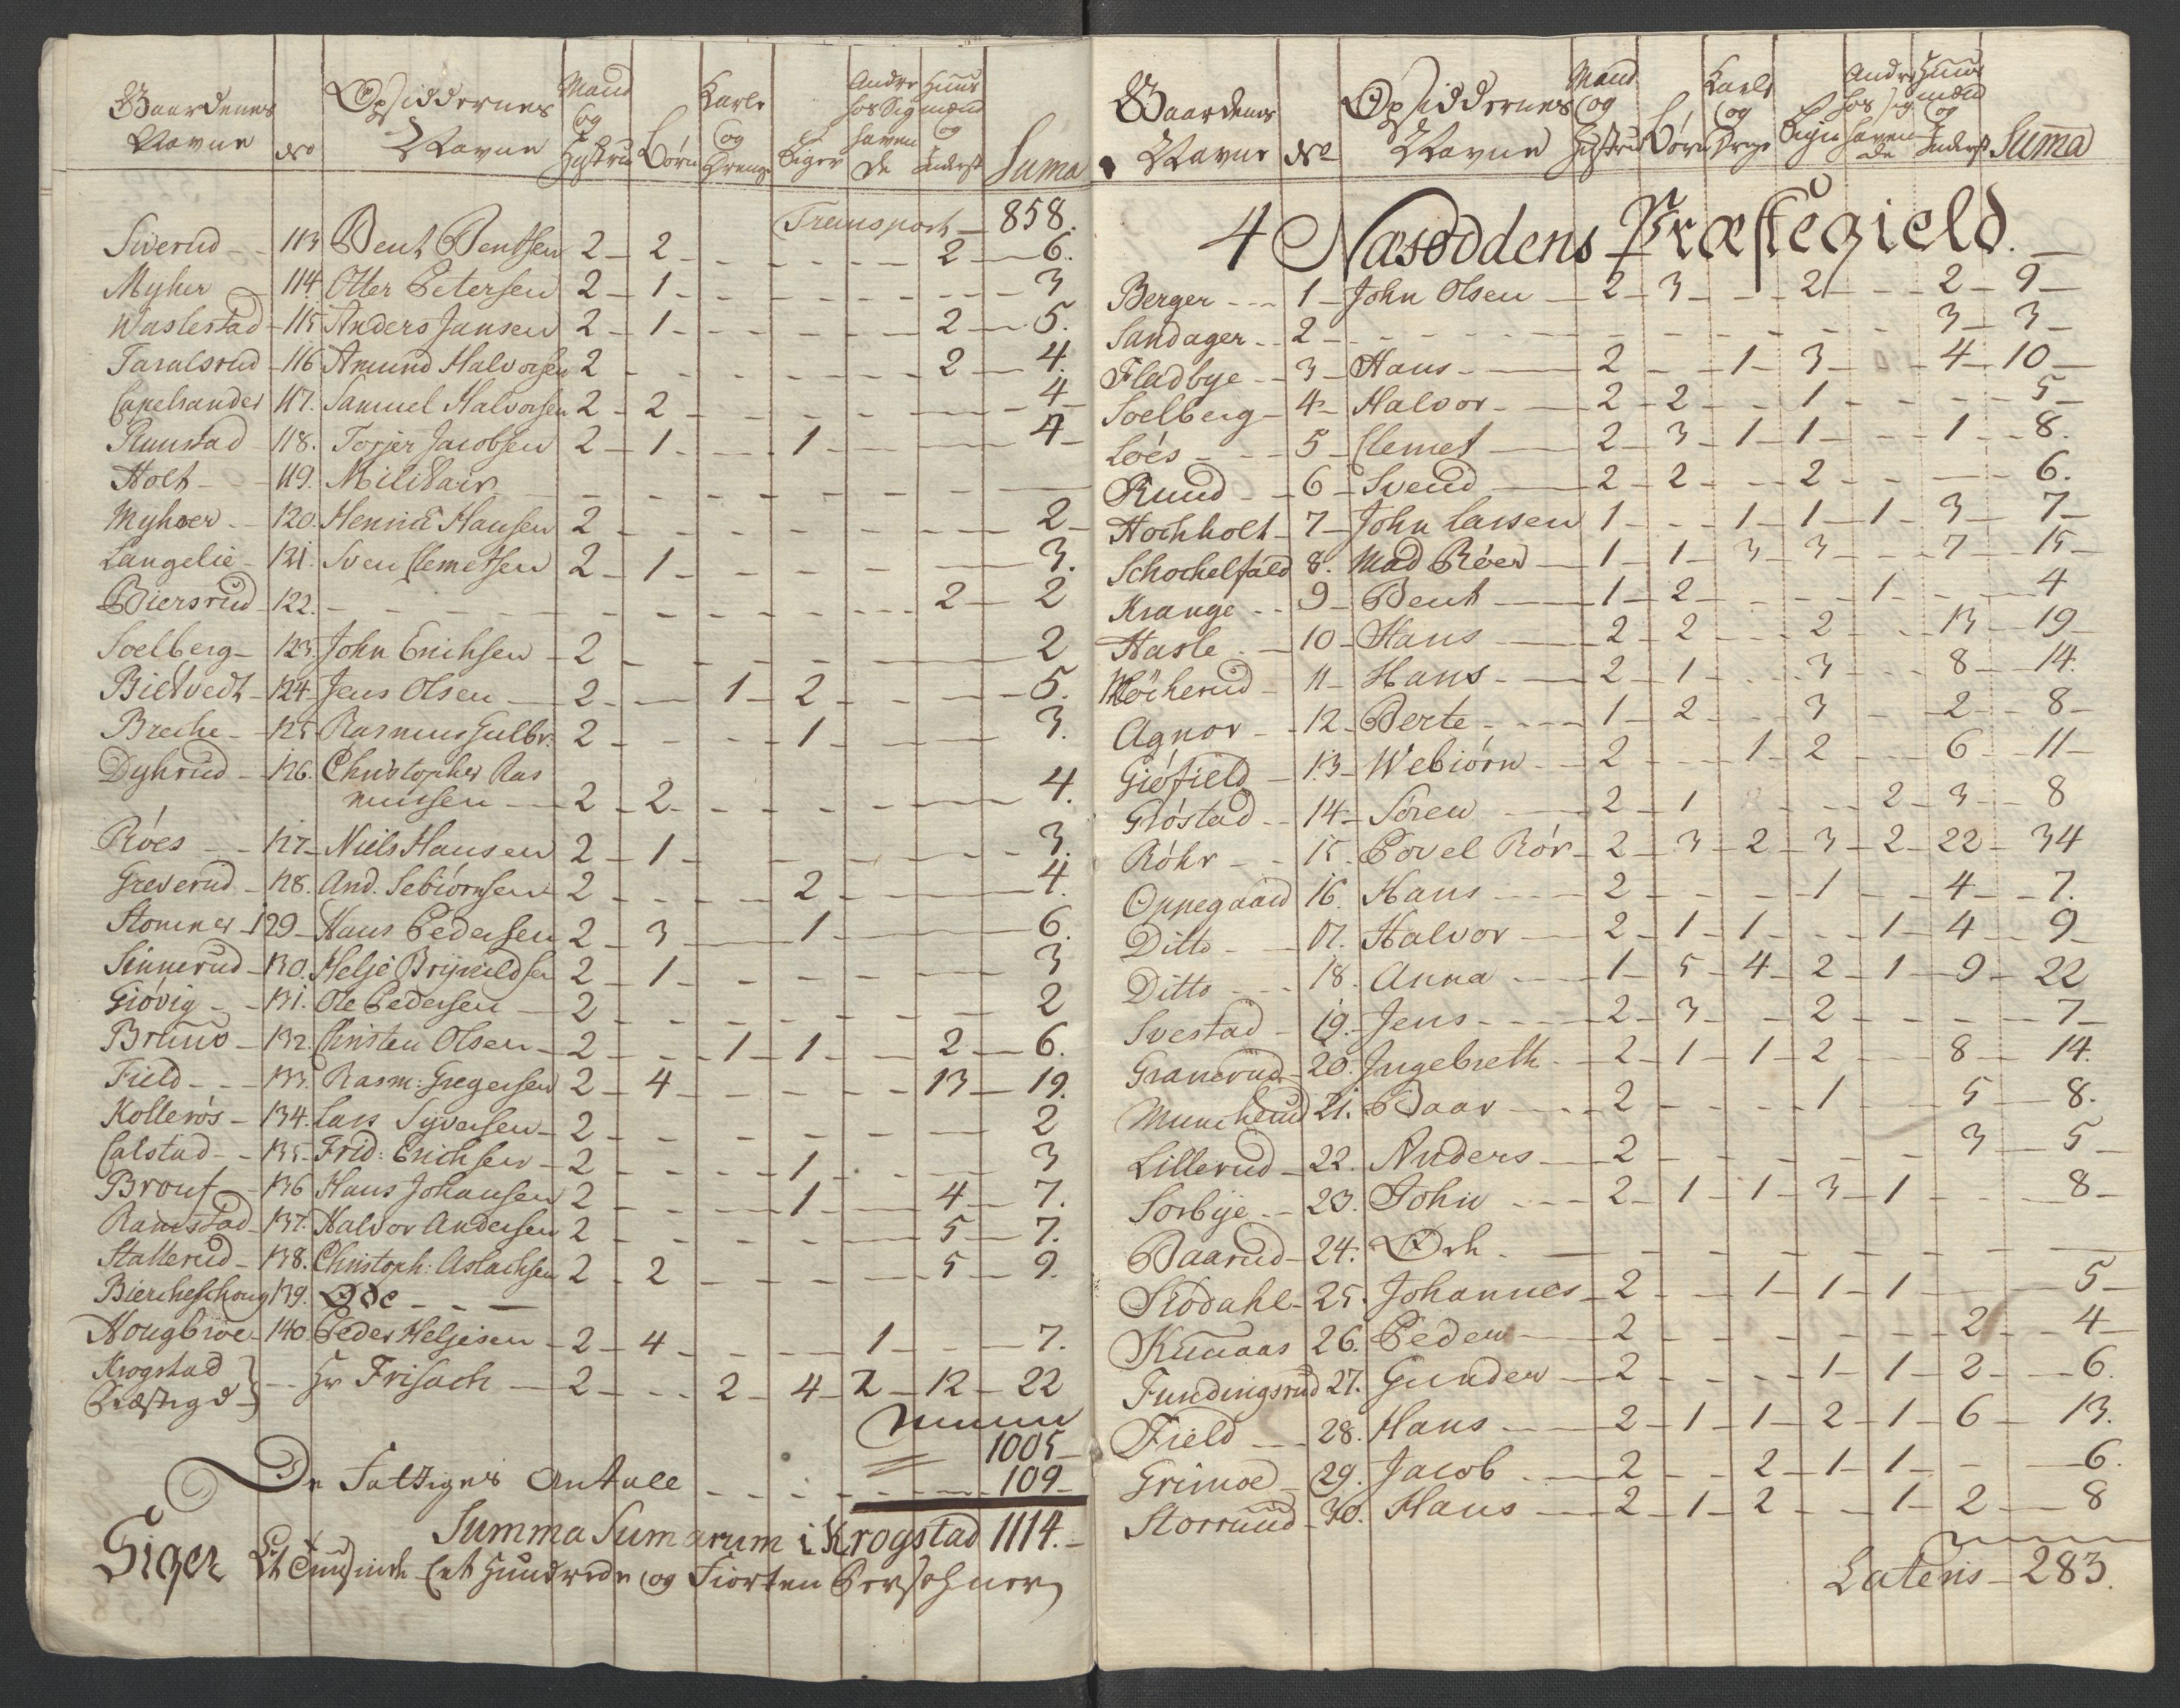 Gaardenes Navne No Opsiddernes Navne Mand og Hustru Børn Karle og Drenge Piger Andre hos Sig havende Huusmænd og Inderst Suma
Transport 858.
Siverud 113 Bent Bentsen 2 2 2 6.
Myhrer 114 Otter Petersen 2 1 3
Waslestad 115 Anders Jansen 2 1 2 5.
Taralsrud 116 Amund Halvorsen 2 2 4.
Capelsander 117. Samuel Halvorsen 2 2 4
Rustad 118. Torjer Jacobsen 2 1 1 4
Holt 119. Militair
Myhrer 120. Henrich Hansen 2 2
Langelie 121. Sven Clemetsen 2 1 3.
Biersrud 122. 2 2
Soelberg 123. John Erichsen 2 2
Bietvedt 124. Jens Olsen 2 1 2 5.
Breche 125 Rasmus Gulbr. 2 1 3.
Dyhrud 126. Christopher Ras
mussen 2 2 4.
Róes 127 Niels Hansen 2 1 3.
Greverud 128. And. Sebiórnsen 2 2 4.
Stomner 129 Hans Pedersen 2 3 1 6.
Sinnerud 130. Helje Brynildsen 2 1 3
Gióvig 131. Ole Pedersen 2 2
Bruus 132. Christen Olsen 2 1 1 2 6.
Field 133. Rasm: Gregersen 2 4 13 19.
Kollerós 134. Lars Syversen 2 2
Calstad 135. Frid: Erichsen 2 1 3
Brouf 136 Hans Johansen 2 1 4 7.
Ramstad 137. Halvor Andersen 2 5 7.
Stallerud 138. Christoph: Aslachsen 2 2 5 9.
Biercheschoug 139. Øde
Hougbroe 140. Peder Heljesen 2 4 1 7.
Krogstad
Præstegd } Hr Frisach 2 2 4 2 12 22
Summa
1005
De Fattiges Antall 109
Summa Sumarum i Krogstad 1114.
Siger Et Tuusinde Eet Hundrede og Fiorten Persohner
Gaardenes Navne No Opsiddernes Navne Mand og Hustru Børn Karle og Drenge Piger Andre hos sig havende Huusmænd og Inderst Suma
4 Næsoddens Præstegield.
Berger 1 John Olsen 2 3 2 2 9
Sandager 2 3 3
Fladbye 3 Hans 2 1 3 4 10
Soelberg 4 Halvor 2 2 1 5
Lóes 5 Clemet 2 3 1 1 1 8.
Ruud 6 Svend 2 2 2 6.
Hochholt 7 John Larsen 1 1 1 1 3 7
Schochelfald 8. Mad Róer 1 1 3 3 7 15
Krange 9 Bent 1 2 1 4
Hasle 10 Hans 2 2 2 13 19
Mócherud 11 Hans 2 1 3 8 14.
Agnor 12 Berte 1 2 3 2 8
Giófield 13 Webiórn 2 1 2 6 11
Gróstad 14 Sóren 2 1 2 3 8
Róhr 15. Povel Rór 2 3 2 3 2 22 34
Oppegaard 16. Hans 2 1 4 7.
Ditto 17. Halvor 2 1 1 1 4 9
Ditto 18. Anna 1 5 4 2 1 9 22
Svestad 19. Jens 2 3 2 7
Granerud 20. Ingebreth 2 1 1 2 8 14.
Muncherud 21. Baar 2 1 5 8.
Lillerud 22. Anders 2 3 5
Sorbye 23. John 2 1 1 3 1 8
Baarud 24. Øde
Skodahl 25. Johannes 2 1 1 1 5
Kunaas 26. Peder 2 2 4
Fundingsrud 27. Gunder 2 1 1 2 6.
Field 28. Hans 2 1 1 2 1 6 13.
Grimoe 29. Jacob 2 2 1 1 6.
Storruud 30. Hans 2 1 2 1 2 8
Lateris 283.